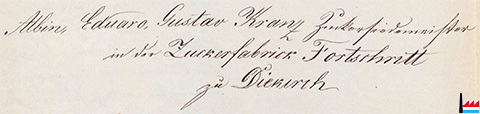 Albin, Eduard, Gustav Kranz Zuckersiedemeister
in der Zuckerfabrick Fortschritt
zu Diekirch